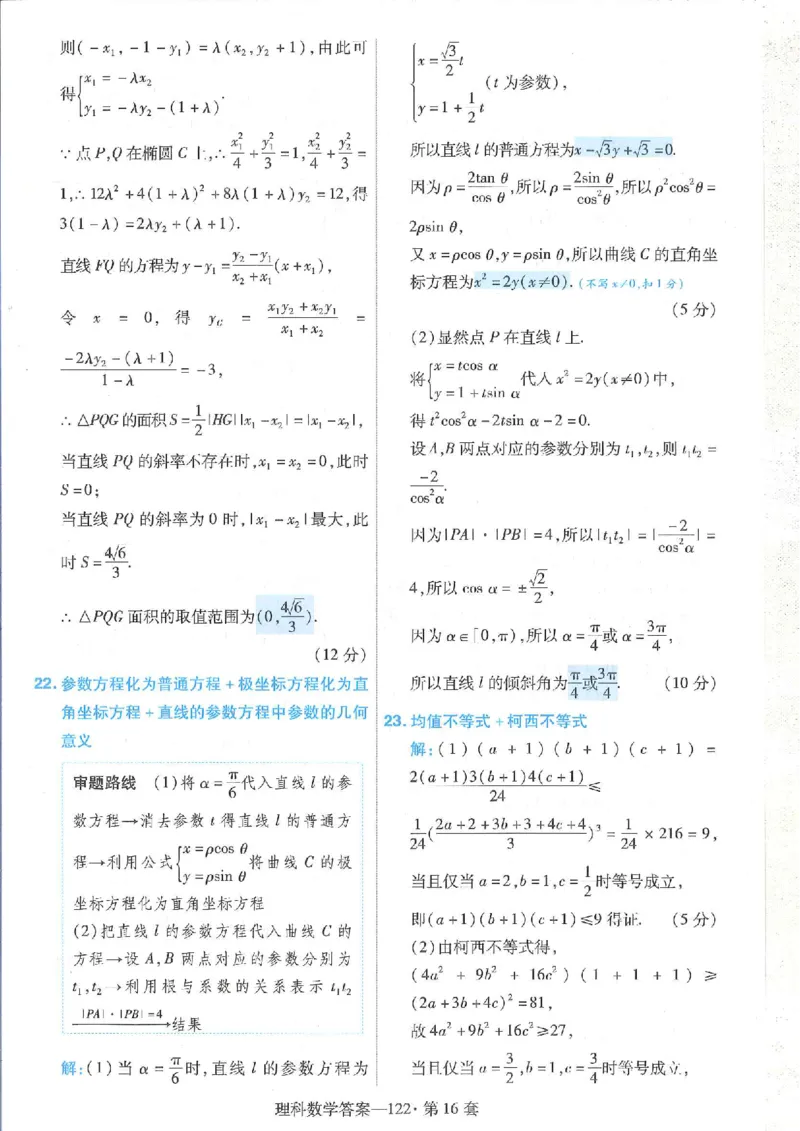 则(-x₁,-1-y₁)=λ(x₂,y₂+1),由此可
得{x₁=-λx₂
y₁=-λy₂-(1+λ).
∵点P,Q在椭圆C上,∴x₁²/4+y₁²/3=1,x₂²/4+y₂²/3=
1,∴12λ²+4(1+λ)²+8λ(1+λ)y₂=12,得
3(1-λ)=2λy₂+(λ+1).
直线FQ的方程为y-y₁=(y₂-y₁)/(x₂+x₁)(x+x₁),
令 x = 0, 得 y_G = (x₁y₂+x₂y₁)/(x₁+x₂) =
(-2λy₂-(λ+1))/(1-λ)=-3,
∴△PQG的面积S=1/2|HG||x₁-x₂|=|x₁-x₂|,
当直线PQ的斜率不存在时,x₁=x₂=0,此时
S=0;
当直线PQ的斜率为0时,|x₁-x₂|最大,此
时S=4√6/3.
∴△PQG面积的取值范围为(0,4√6/3).
(12分)
22.参数方程化为普通方程+极坐标方程化为直
角坐标方程+直线的参数方程中参数的几何
意义
审题路线 (1)将α=π/6代入直线l的参
数方程→消去参数t得直线l的普通方
程→利用公式{x=ρcos θ
y=ρsin θ将曲线C的极
坐标方程化为直角坐标方程
(2)把直线l的参数方程代入曲线C的
方程→设A,B两点对应的参数分别为
t₁,t₂→利用根与系数的关系表示t₁t₂
|PA|·|PB|=4→结果
解:(1)当α=π/6时,直线l的参数方程为
{x=√3/2 t
y=1+1/2 t (t为参数),
所以直线l的普通方程为x-√3y+√3=0.
因为ρ=2tan θ/cos θ,所以ρ=2sin θ/cos²θ,所以ρ²cos²θ=
2ρsin θ,
又x=ρcos θ,y=ρsin θ,所以曲线C的直角坐
标方程为x²=2y(x≠0).(不写x≠0,扣1分)
(5分)
(2)显然点P在直线l上.
将{x=tcos α
y=1+tsin α代入x²=2y(x≠0)中,
得t²cos²α-2tsin α-2=0.
设A,B两点对应的参数分别为t₁,t₂,则t₁t₂=
-2/cos²α.
因为|PA|·|PB|=4,所以|t₁t₂|=|-2/cos²α|=
4,所以cos α=±√2/2,
因为α∈[0,π),所以α=π/4或α=3π/4,
所以直线l的倾斜角为π/4或3π/4. (10分)
23.均值不等式+柯西不等式
解:(1)(a+1)(b+1)(c+1)=
2(a+1)3(b+1)4(c+1)/24≤
1/24((2a+2+3b+3+4c+4)/3)³=1/24×216=9,
当且仅当a=2,b=1,c=1/2时等号成立,
即(a+1)(b+1)(c+1)≤9得证. (5分)
(2)由柯西不等式得,
(4a²+9b²+16c²)(1+1+1)≥
(2a+3b+4c)²=81,
故4a²+9b²+16c²≥27,
当且仅当a=3/2,b=1,c=3/4时等号成立,
理科数学答案—122·第16套